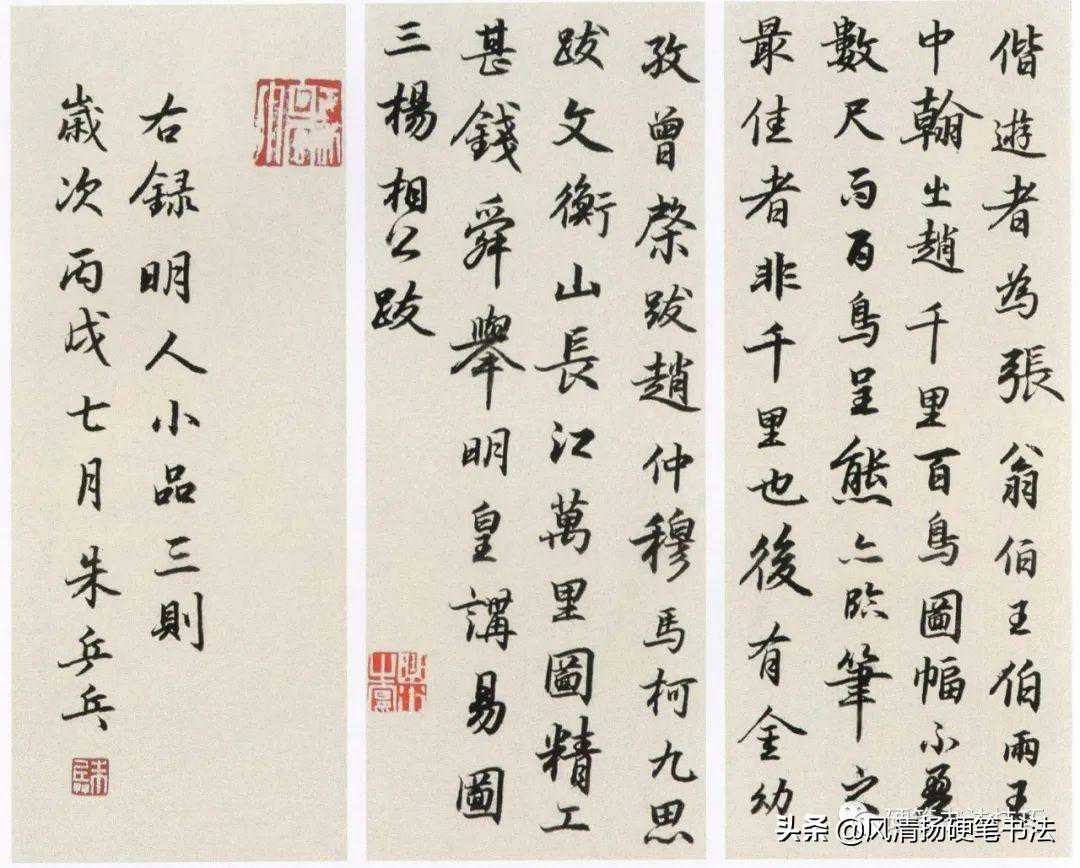 偕遊者為張翁伯王伯雨王
中翰出趙千里百鳥圖幅不盈
數尺而百鳥呈態亦臨筆之
最佳者非千里也後有金幼
孜曾棨跋趙仲穆馬柯九思
跋文衡山長江萬里圖精工
甚錢舜舉明皇講易圖
三楊相公跋
右録明人小品三則
歲次丙戌七月朱乒乓
头条 @风清扬硬笔书法